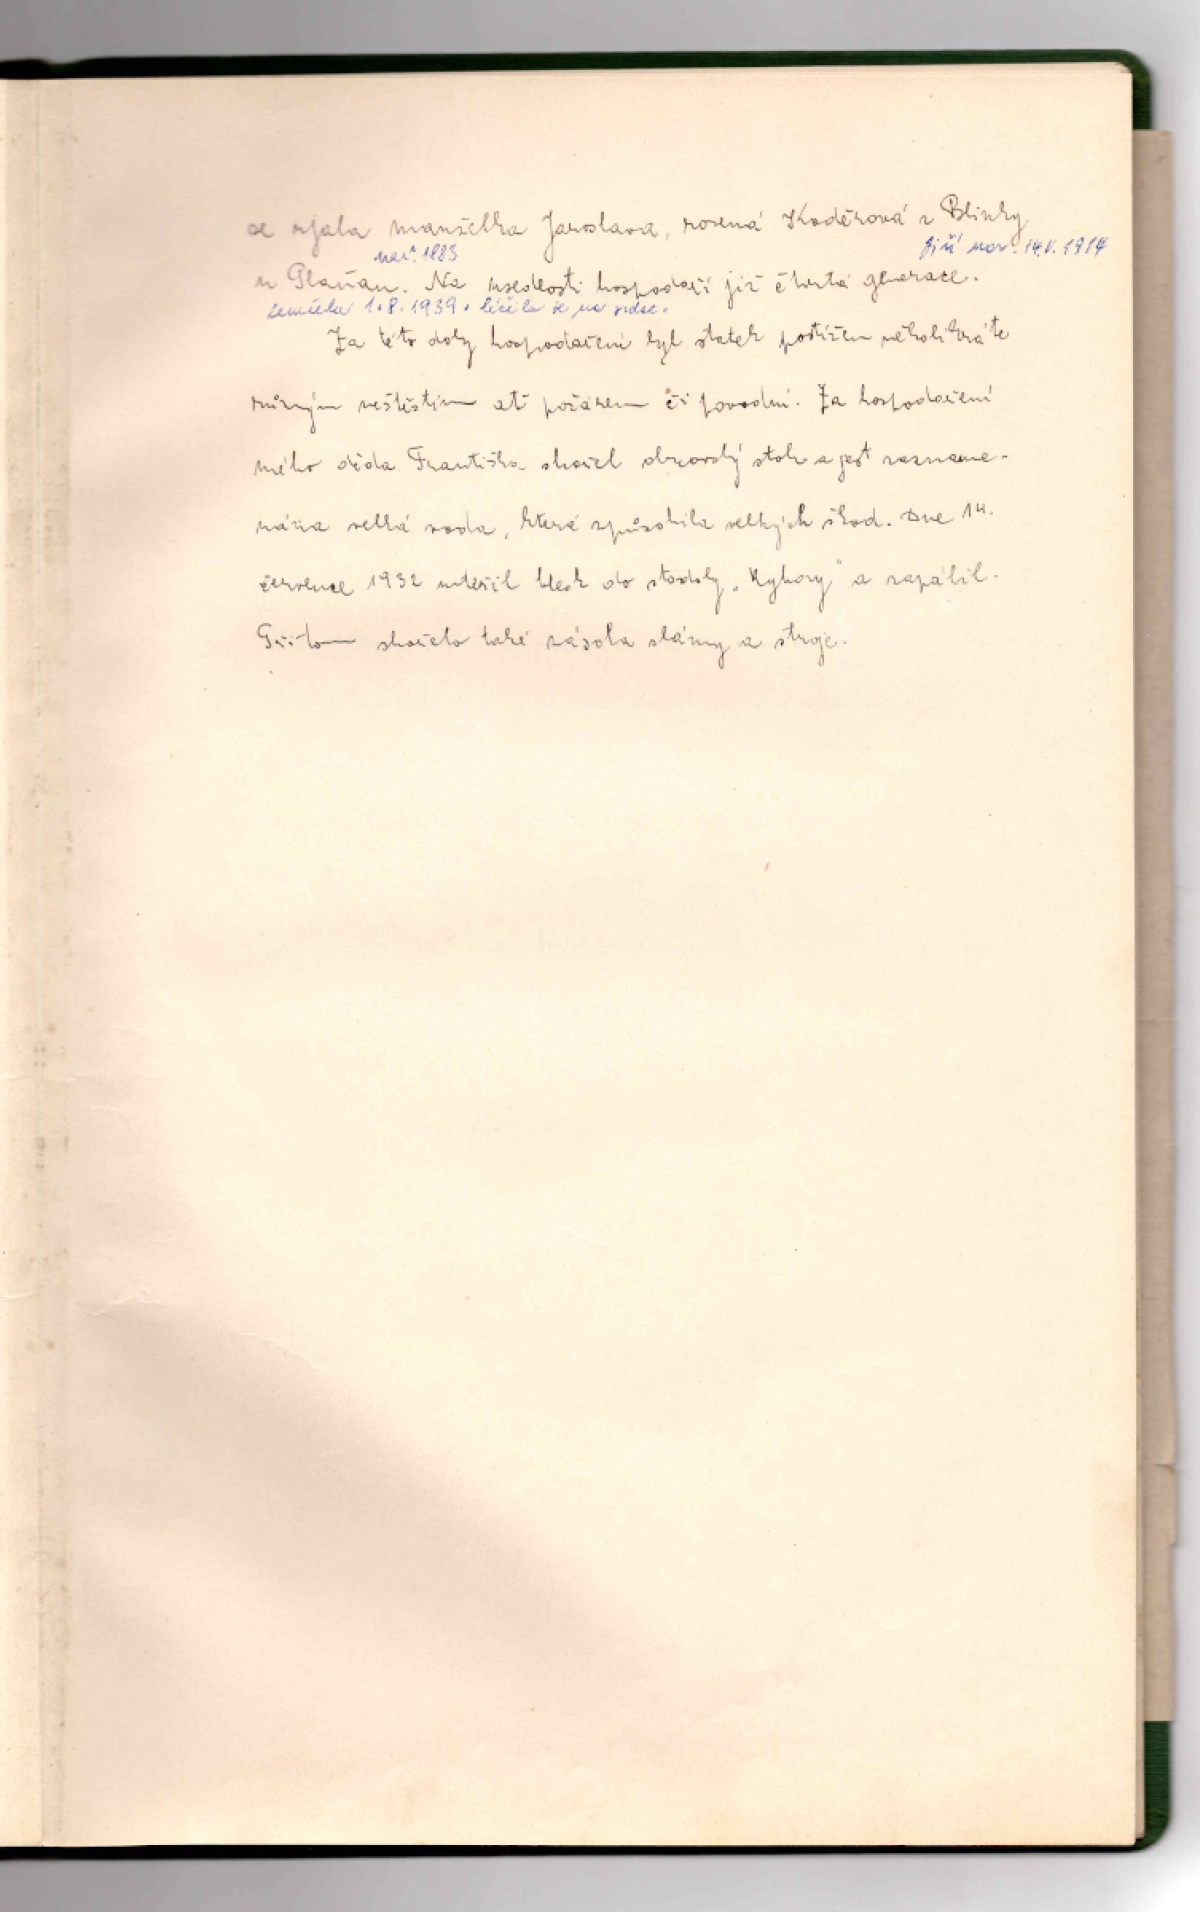 se ujala manželka Jaroslava, rozená Koděrová z Blinky
nar. 1883
Jiří nar. 14.V. 1914
u Plaňan. Na usedlosti hospodaří již čtvrtá generace.
zemřela 1.8.1939. léčila se na srdce.
Za této doby hospodaření byl statek postižen několikráte
různým neštěstím ať požárem či povodní. Za hospodaření
mého děda Františka shořel obrovský stoh a jest zazname-
nána velká voda, která způsobila velkých škod. Dne 14.
července 1932 udeřil blesk do stodoly „Rybovy" a zapálil.
Přitom shořela také zásoba slámy a stroje.